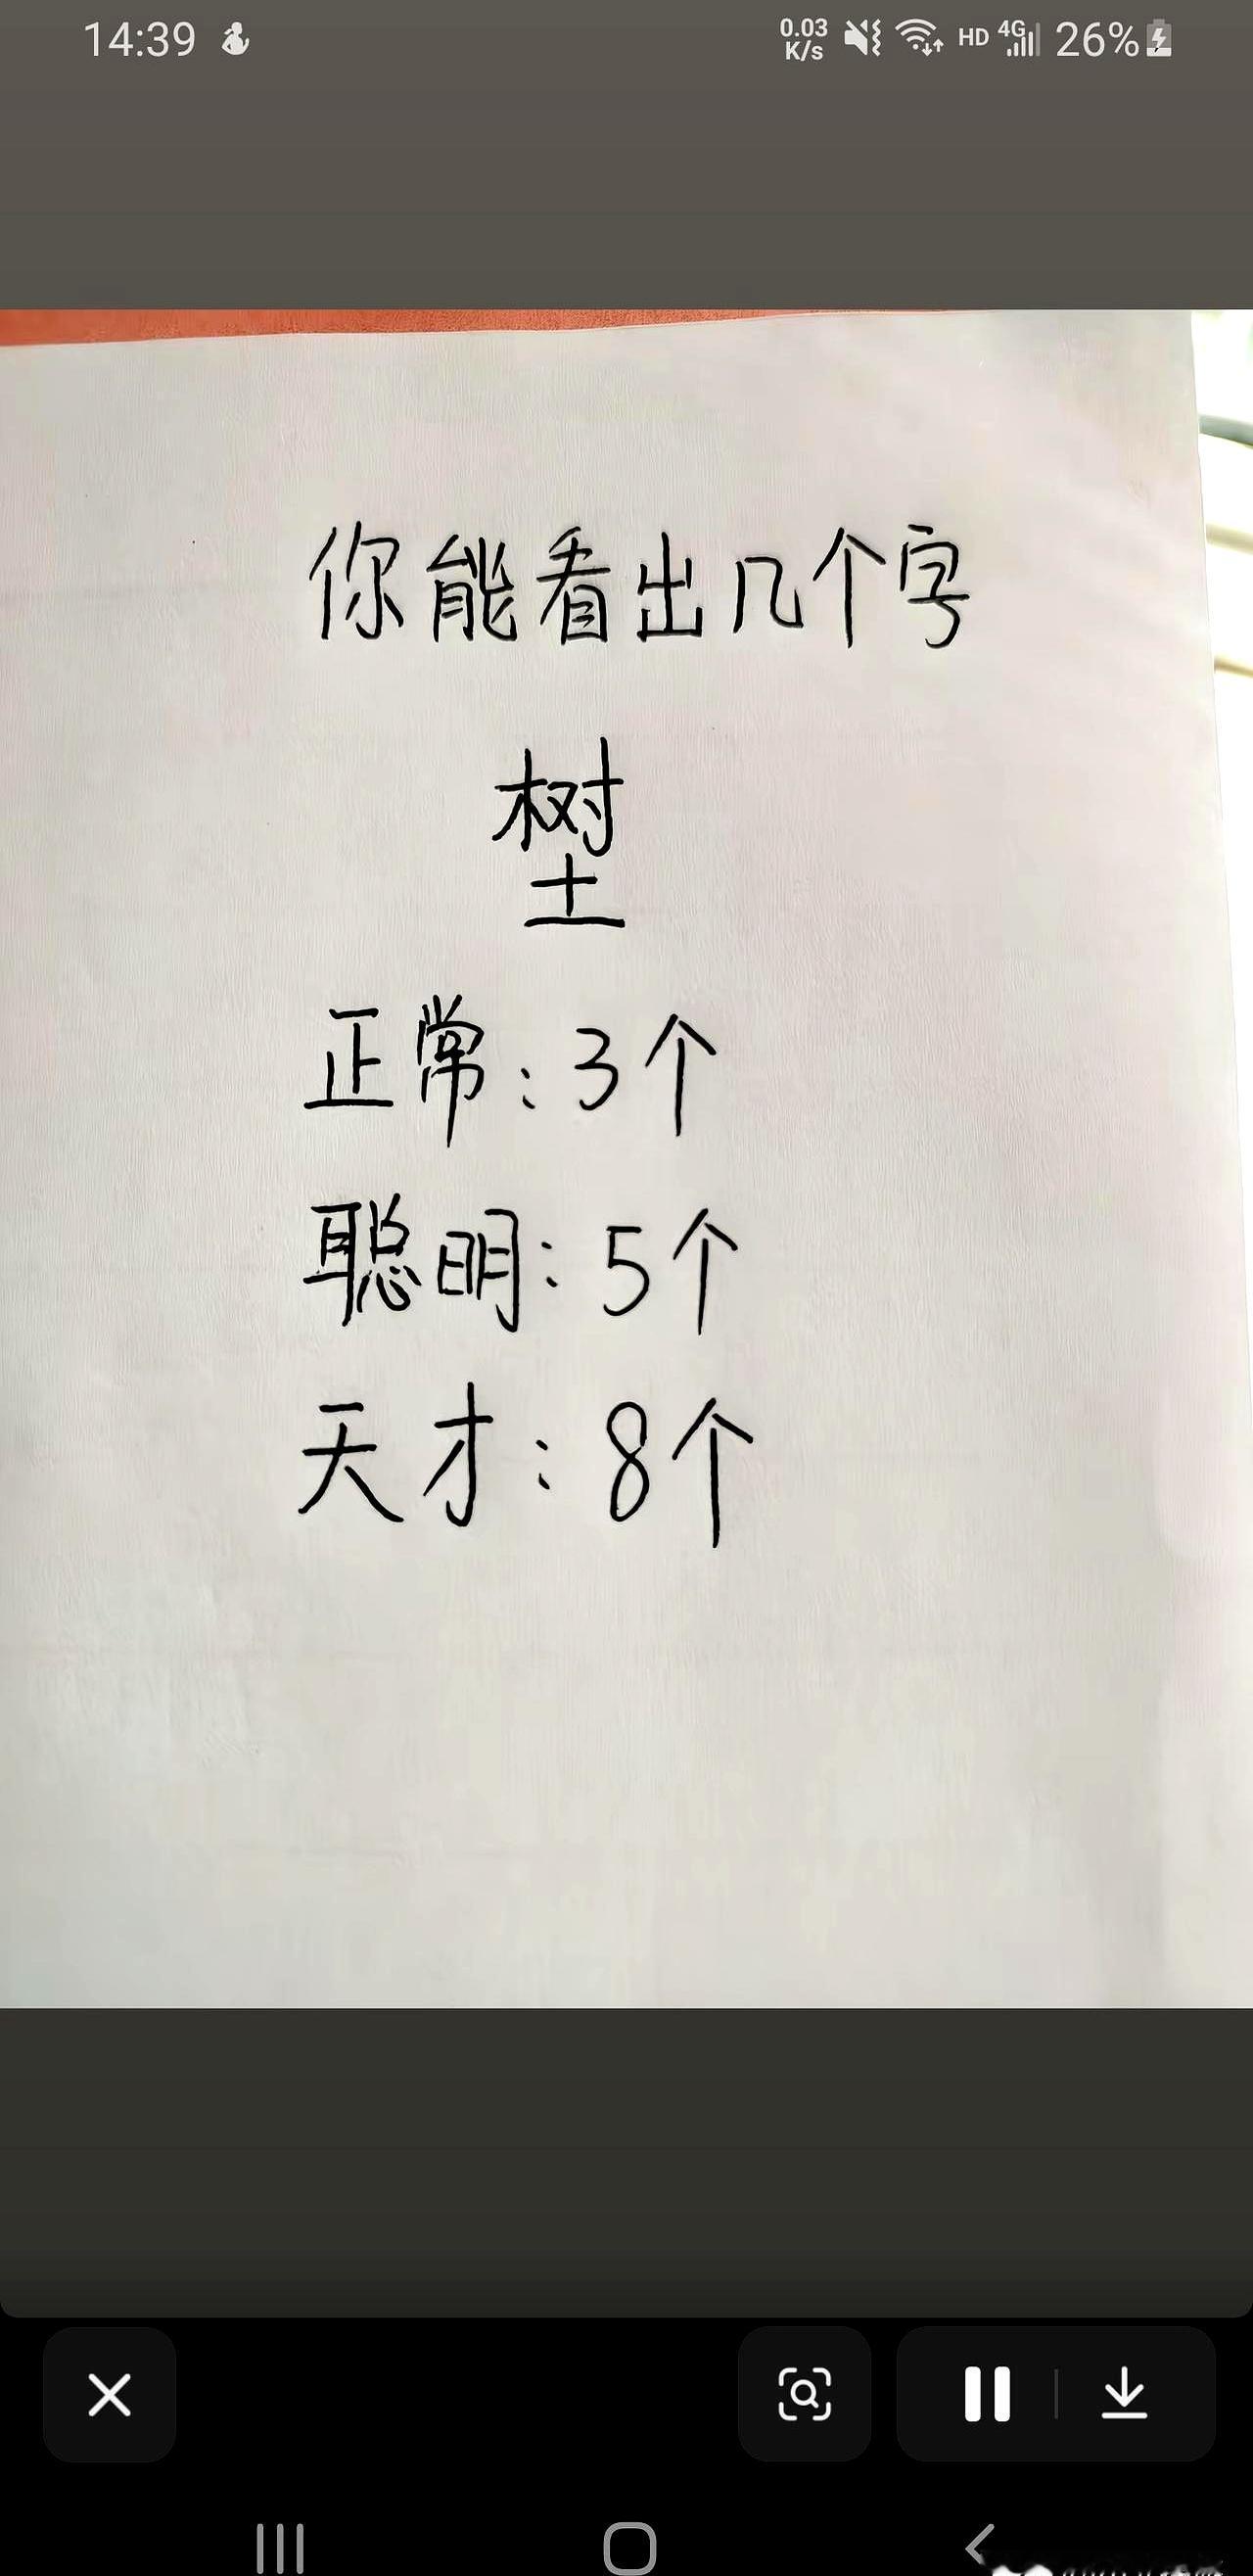 14:39 0.03 K/s HD 4G 26%
你能看出几个字
树
土
正常:3个
聪明:5个
天才:8个